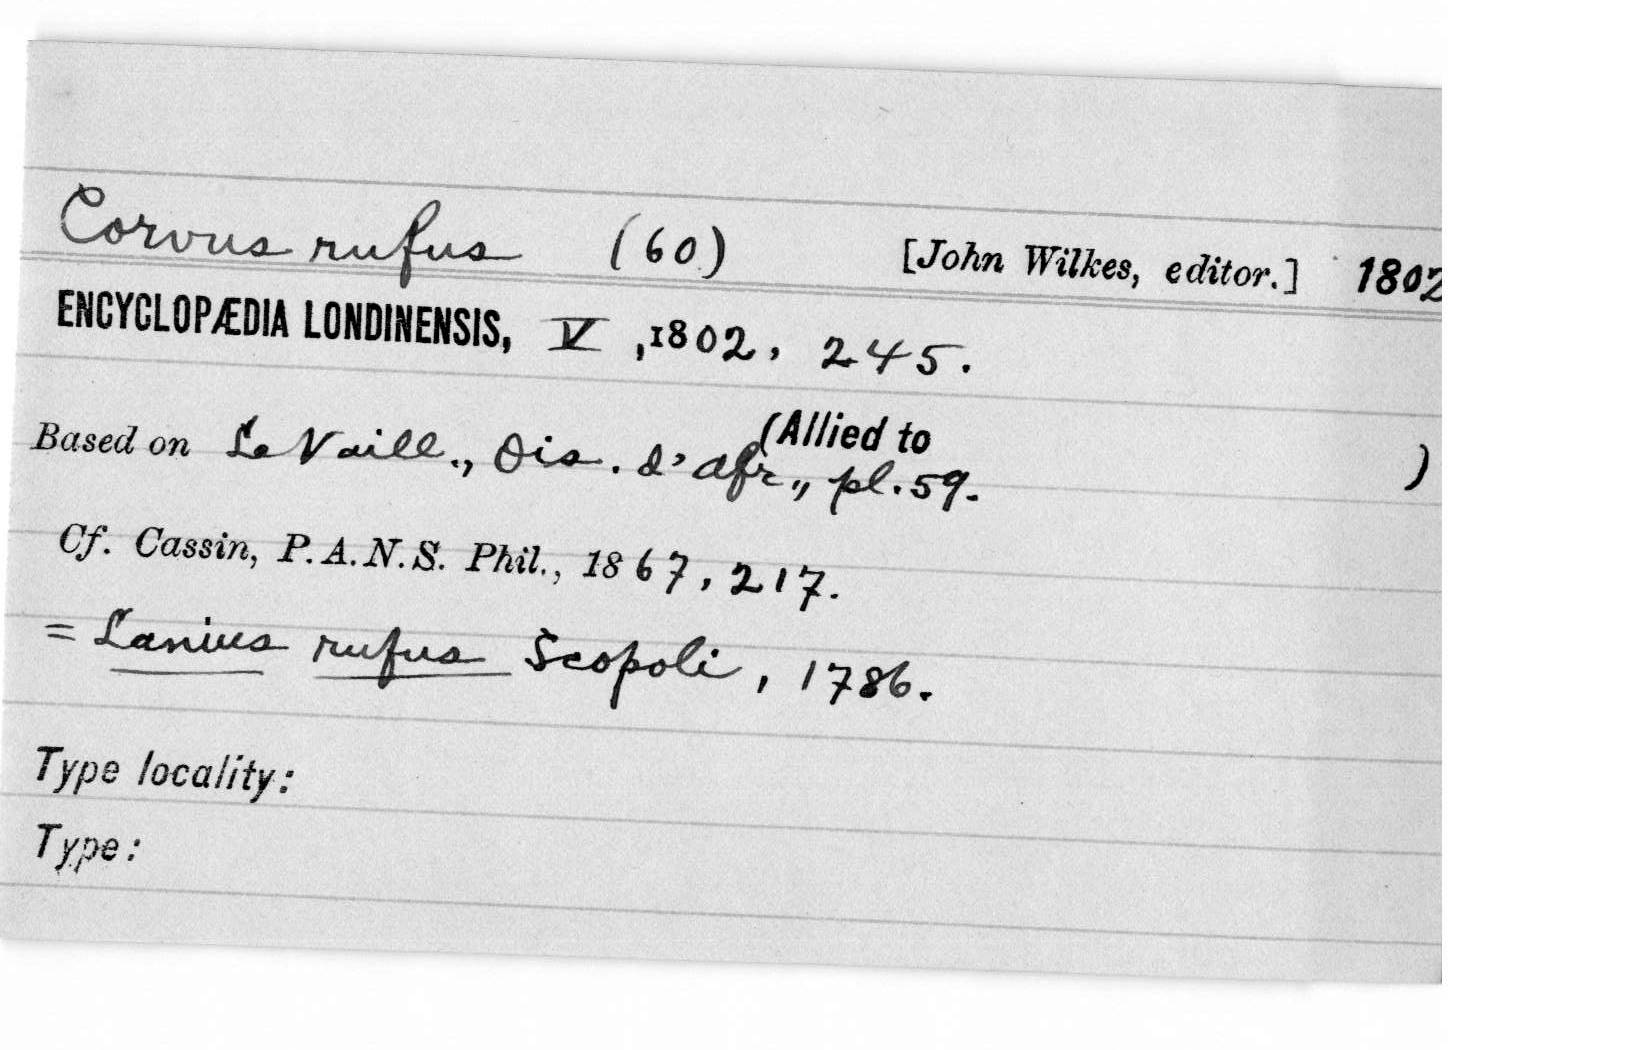 Corvus rufus (60) [John Wilkes, editor.] 1802
ENCYCLOPÆDIA LONDINENSIS, V, 1802, 245.
(Allied to )
Based on Le Vaill., Ois. d'Afr., pl. 59.
Cf. Cassin, P. A. N. S. Phil., 1867, 217.
= Lanius rufus Scopoli, 1786.
Type locality:
Type: